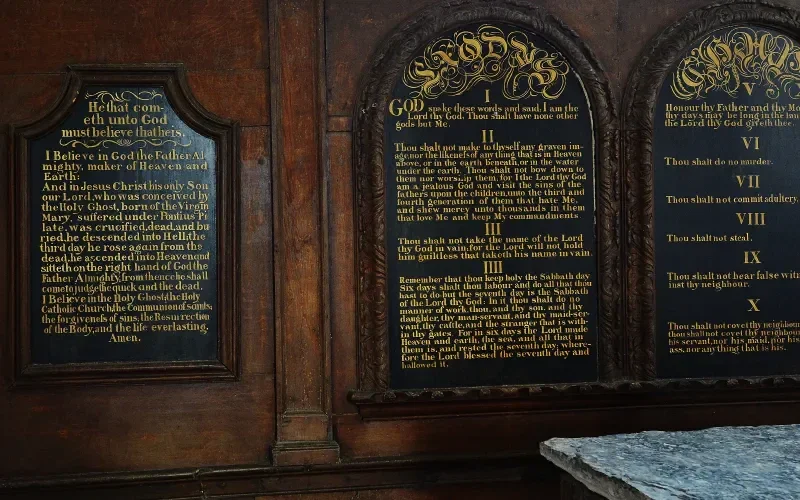 He that com-
eth unto God
must believe that he is.
I Believe in God the Father Al
mighty, maker of Heaven and
Earth:
And in Jesus Christ his only Son
our Lord, who was conceived by
the Holy Ghost, born of the Virgin
Mary, suffered under Pontius Pi
late, was crucified, dead, and bu
ried, he descended into Hell; the
third day he rose again from the
dead, he ascended into Heaven and
sitteth on the right hand of God the
Father Almighty, from thence he shall
come to judge the quick and the dead.
I Believe in the Holy Ghost, the Holy
Catholic Church, the Communion of Saints,
the forgiveness of sins, the Resurrection
of the Body, and the life everlasting.
Amen.
EXODUS
I
GOD spake these words and said, I am the
Lord thy God. Thou shalt have none other
gods but Me.
II
Thou shalt not make to thyself any graven im-
age, nor the likeness of any thing that is in Heaven
above, or in the earth beneath, or in the water
under the earth. Thou shalt not bow down to
them nor worship them, for I the Lord thy God
am a jealous God and visit the sins of the
fathers upon the children, unto the third and
fourth generation of them that hate Me,
and shew mercy unto thousands in them
that love Me and keep My commandments
III
Thou shalt not take the name of the Lord
thy God in vain, for the Lord will not hold
him guiltless that taketh his name in vain.
IIII
Remember that thou keep holy the Sabbath day
Six days shalt thou labour and do all that thou
hast to do but the seventh day is the Sabbath
of the Lord thy God: In it thou shalt do no
manner of work, thou, and thy son, and thy
daughter, thy man-servant, and thy maid-ser-
vant, thy cattle, and the stranger that is with-
in thy gates. For in six days the Lord made
Heaven and earth, the sea, and all that in
them is, and rested the seventh day; where-
fore the Lord blessed the seventh day and
hallowed it.
V
Honour thy Father and thy Mo
thy days may be long in the lan
the Lord thy God giveth thee.
VI
Thou shalt do no murder.
VII
Thou shalt not commit adultery.
VIII
Thou shalt not steal.
IX
Thou shalt not bear false witn
inst thy neighbour.
X
Thou shalt not covet thy neighbour
thou shalt not covet thy neighbour
his servant, nor his maid, nor his
ass, nor any thing that is his.